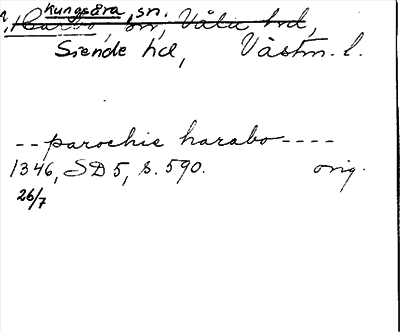 Kungsåra, sn.
Harbo sn, Våla hd,
Siende hd, Västm. l.
--parochie harabo----
1346, SD 5, s. 590. orig.
26/7